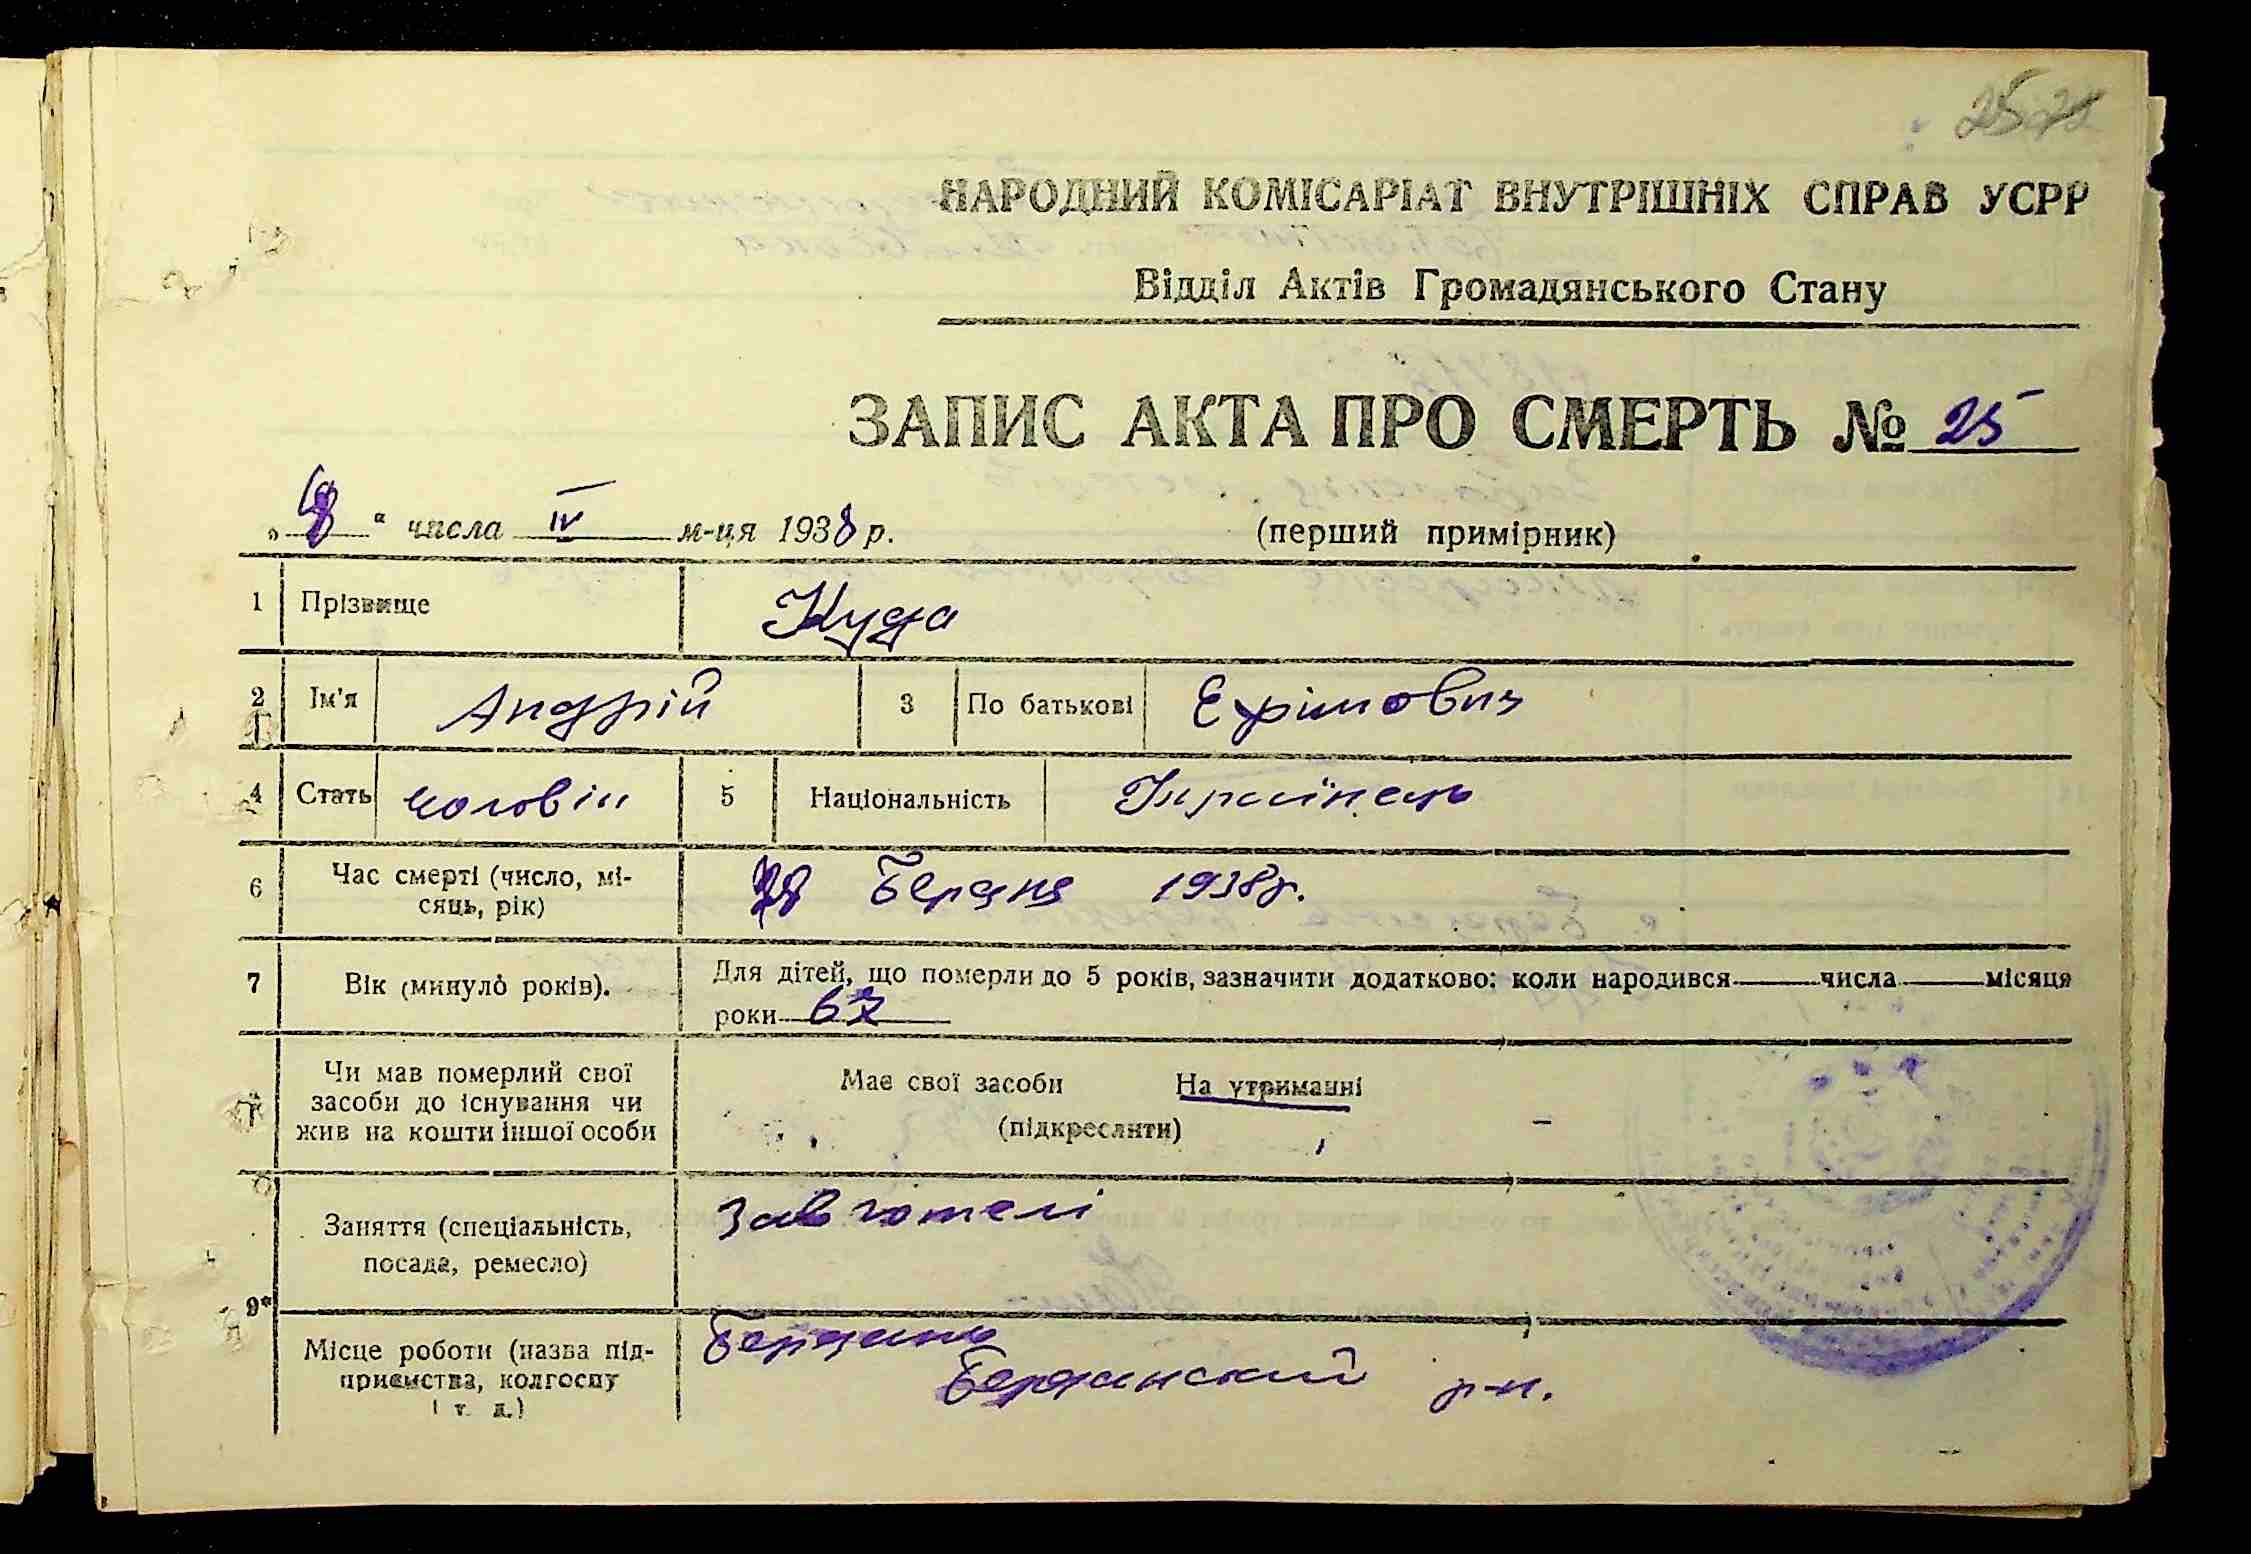 25
НАРОДНИЙ КОМІСАРІАТ ВНУТРІШНІХ СПРАВ УСРР
Відділ Актів Громадянського Стану
ЗАПИС АКТА ПРО СМЕРТЬ № 25
„8“ числа IV м-ця 1938 р. (перший примірник)
1 Прізвище Куда
2 Ім'я Андрій 3 По батькові Ефімович
4 Стать чоловік 5 Національність Українець
6 Час смерті (число, мі-
сяць, рік) 1938р.
7 Вік (минуло років). Для дітей, що померли до 5 років, зазначити додатково: коли народився числа місяця
роки 67
Чи мав померлий свої
засоби до існування чи
жив на кошти іншої особи
Має свої засоби На утриманні
(підкреслити)
Заняття (спеціальність,
посада, ремесло)
9*
Місце роботи (назва під-
приємства, колгоспу
і т. д.)
р-н.